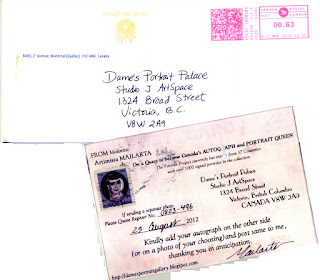 CIRQUE DU SOLEIL
CANADA
POSTES POST
00.63
8400, 2e Avenue, Montréal (Québec) H1Z 4M6 Canada
Dame's Portrait Palace
Studio J ArtSpace
1324 Broad Street
Victoria, B.C.
V8W 2A9
FROM Madame
Artemisia MAILARTA
On a Quest to become Canada's AUTOGRAPH and PORTRAIT QUEEN
The Portrait Project currently has from 37 Countries
with over 1000 signed portraits in the collection
Dame's Portrait Palace
Studio J ArtSpace
1324 Broad Street
Victoria, British Columbia
CANADA V8W 2A9
If sending a separate photo
Please Quote Register No. 0823-496
29 August 2012
Kindly add your autograph on the other side
(or on a photo of your choosing) and post same to me,
thanking you in anticipation.
Mailarta
http://damesportraitgallery.blogspot.com